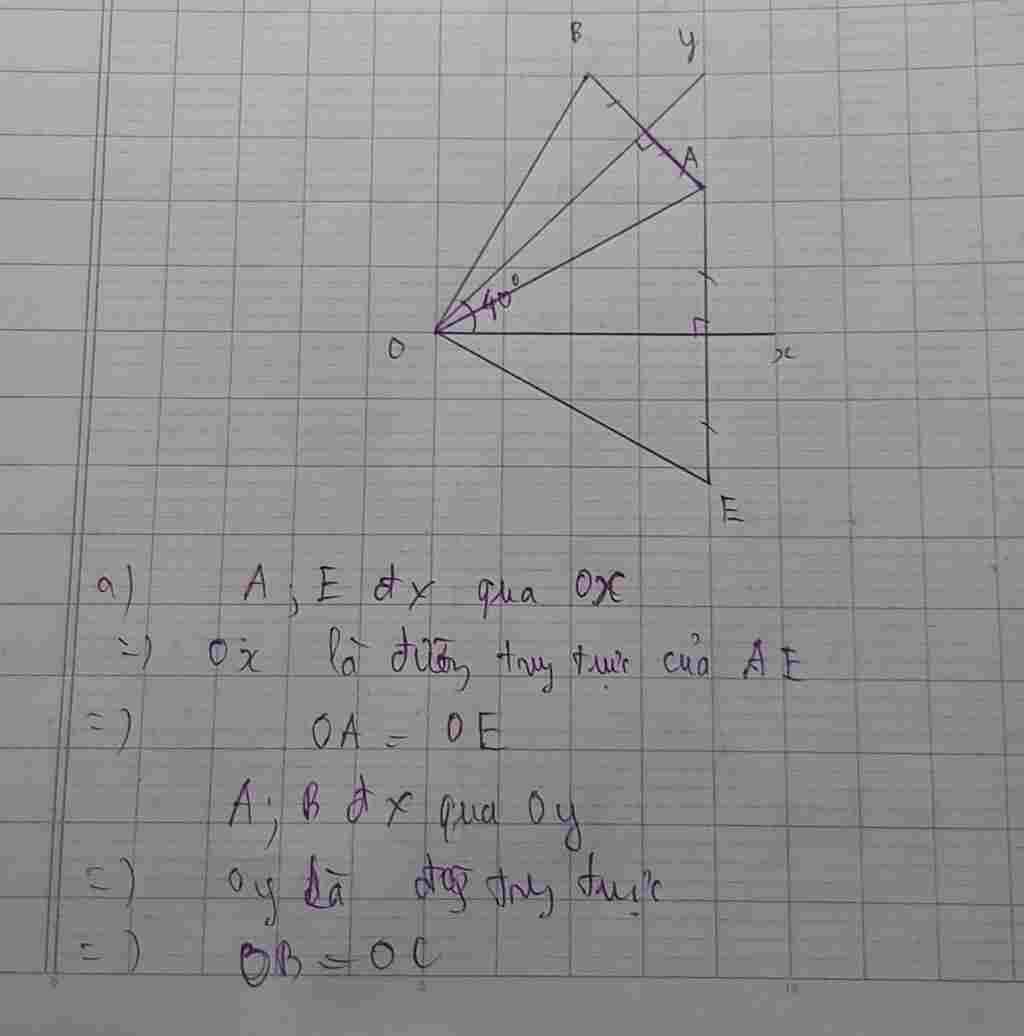 B y
A
40°
O x
E
a) A; E đx qua Ox
=) Ox là đường trung trực của AE
=) OA = OE
A; B đx qua Oy
=) Oy là đg trung trực
=) OB = OC